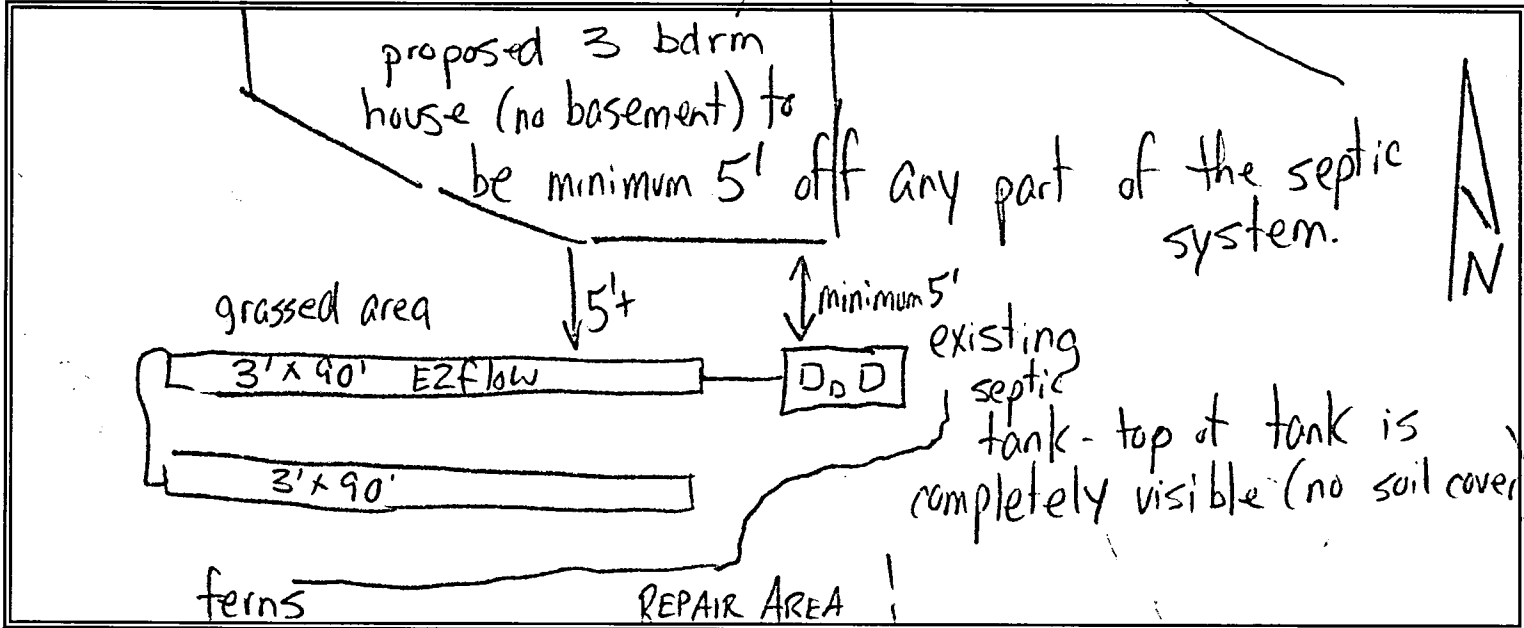 proposed 3 bdrm
house (no basement) to
be minimum 5' off any part of the septic
system.
N
grassed area
5'+
minimum 5'
3' x 90' EZflow
D D D
existing
septic
tank - top of tank is
completely visible (no soil cover
3' x 90'
ferns
REPAIR AREA